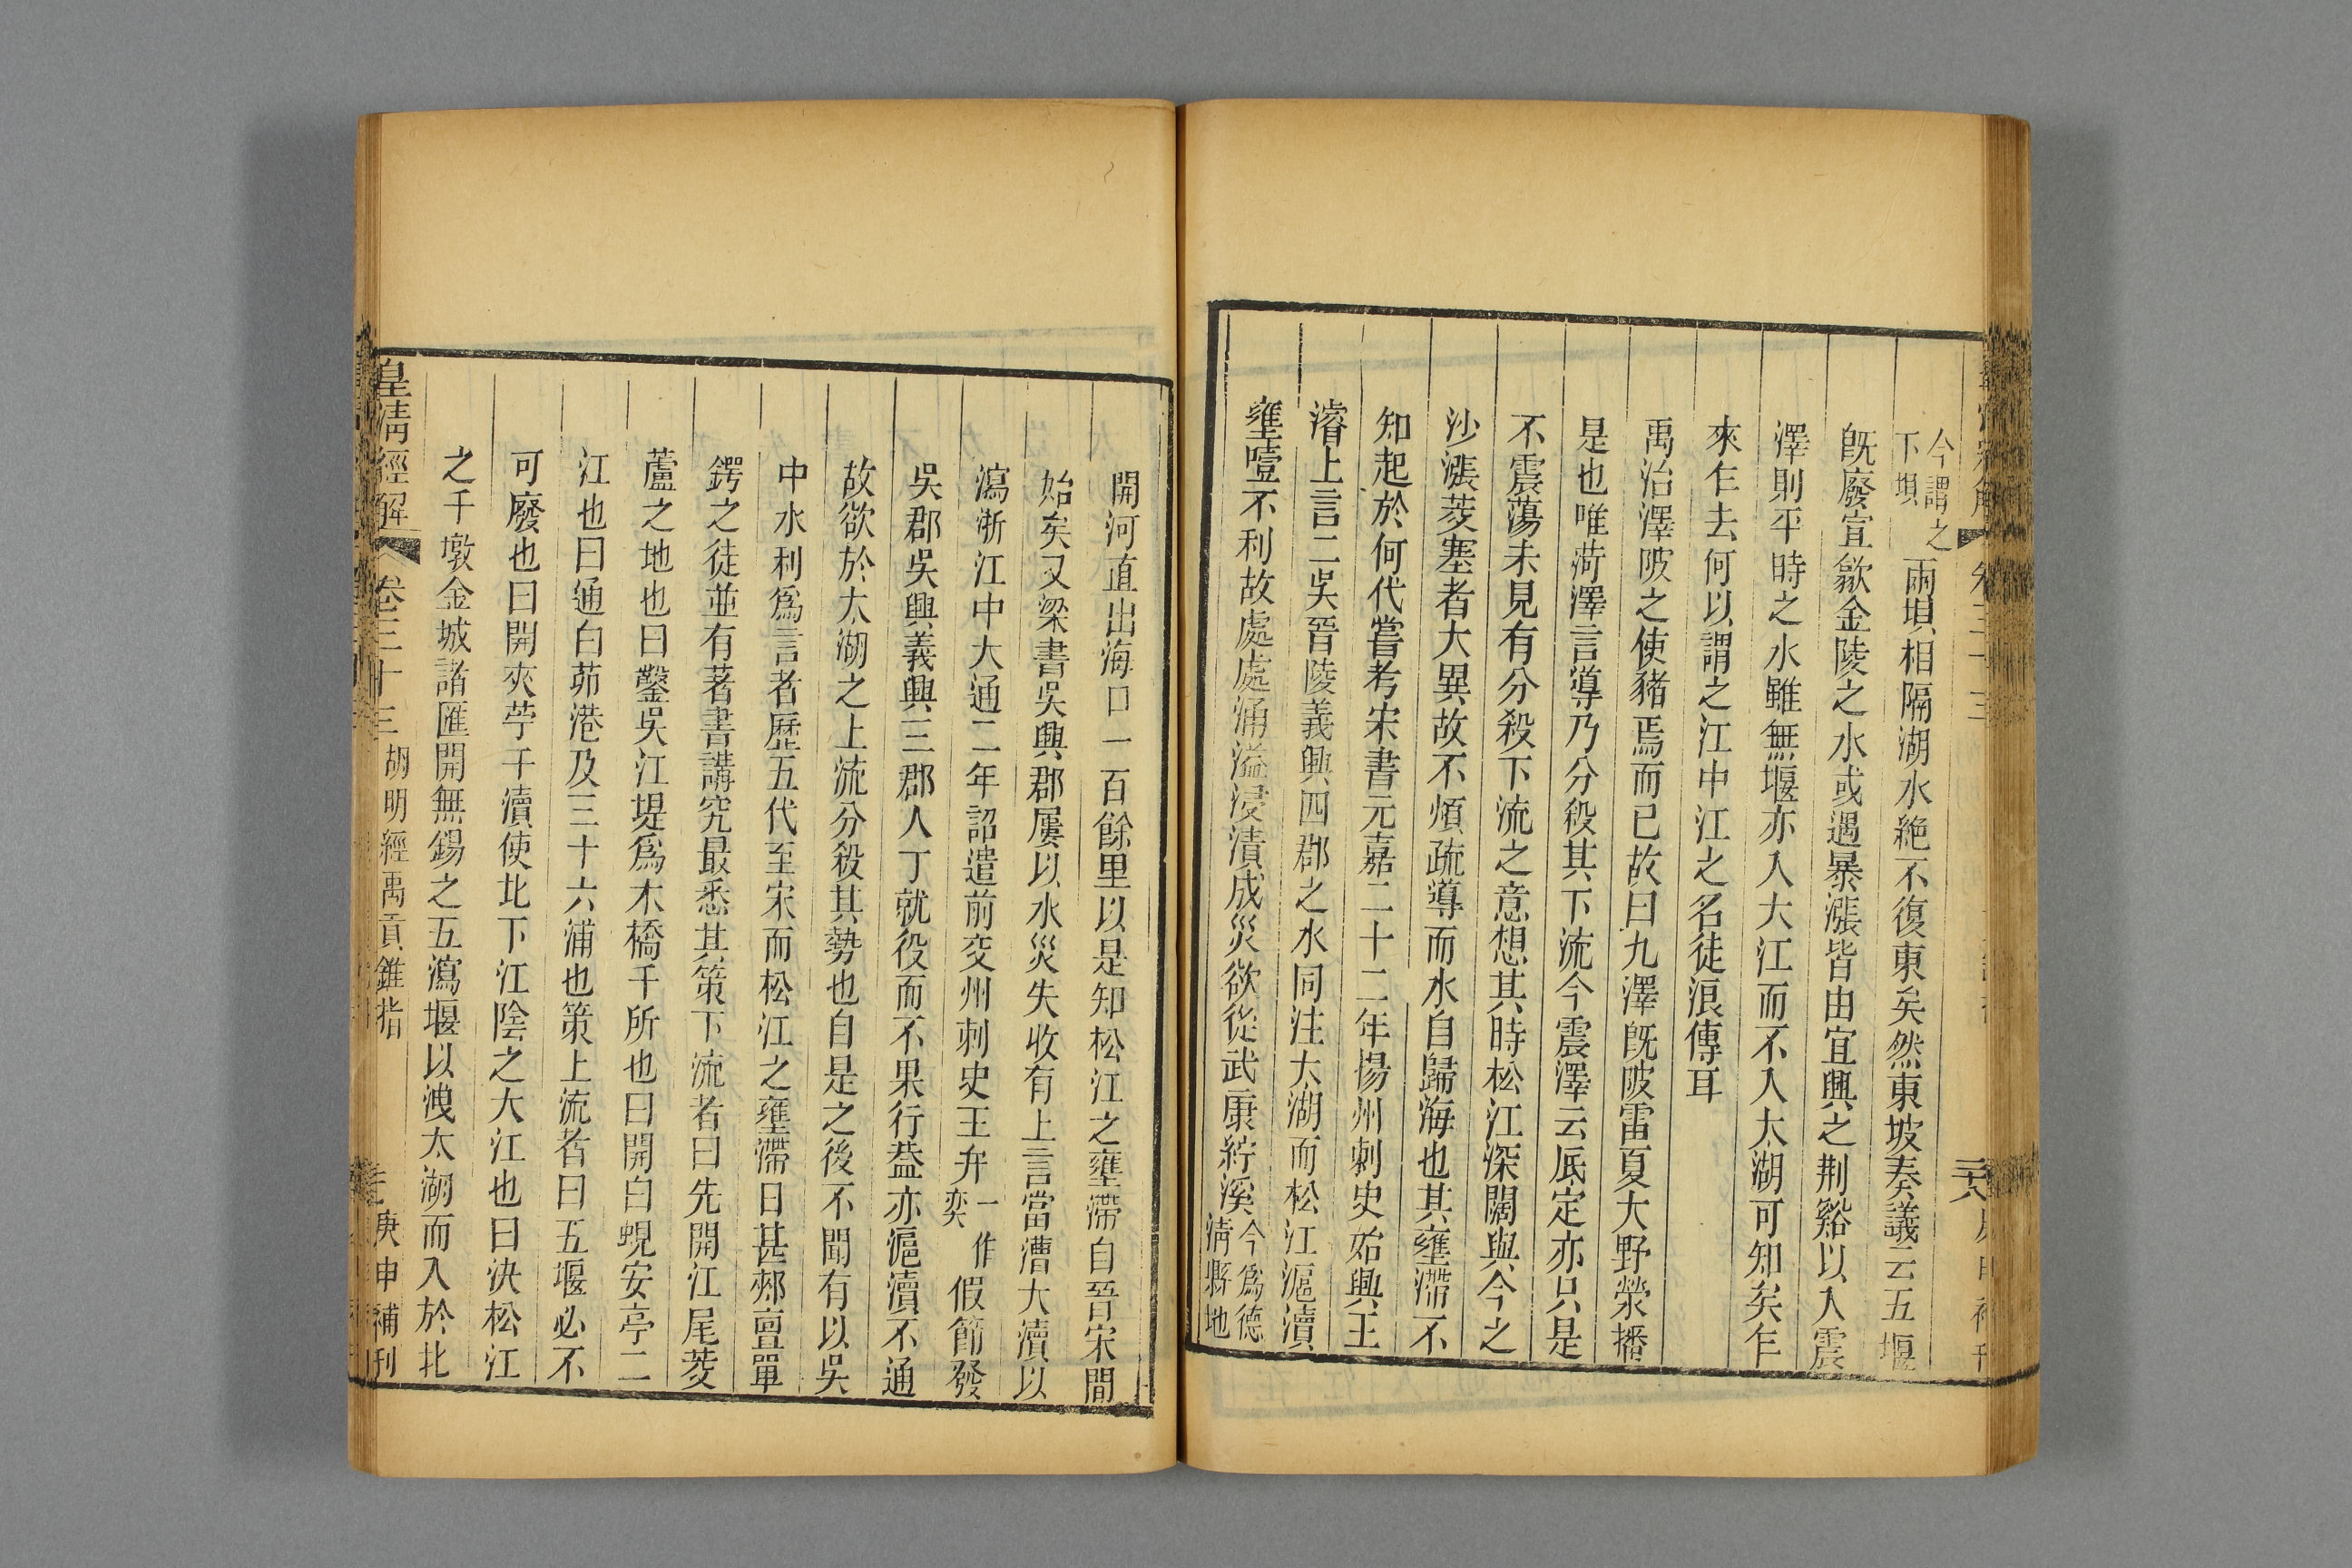 今謂之
下垻
兩垻相隔湖水絶不復東矣然東坡奏議云五堰
既廢宣歙金陵之水或遇暴漲皆由宜興之荆谿以入震
澤則平時之水雖無堰亦入大江而不入太湖可知矣乍
來乍去何以謂之江中江之名徒浪傳耳
禹治澤陂之使豬焉而已故曰九澤既陂雷夏大野滎播
是也唯菏澤言導乃分殺其下流今震澤云厎定亦只是
不震蕩未見有分殺下流之意想其時松江深闊與今之
沙漲茭塞者大異故不煩疏導而水自歸海也其壅滯不
知起於何代嘗考宋書元嘉二十二年揚州刺史始興王
濬上言二吳晉陵義興四郡之水同注太湖而松江滬瀆
壅噎不利故處處涌溢浸漬成災欲從武康紵溪
今為德
清縣地
開河直出海口一百餘里以是知松江之壅滯自晉宋間
始矣又梁書吳興郡屢以水災失收有上言當漕大瀆以
瀉浙江中大通二年詔遣前交州刺史王弁
一作
奕
假節發
吳郡吳興義興三郡人丁就役而不果行葢亦滬瀆不通
故欲於太湖之上流分殺其勢也自是之後不聞有以吳
中水利爲言者歷五代至宋而松江之壅滯日甚郟亶單
鍔之徒並有著書講究最悉其策下流者曰先開江尾茭
蘆之地也曰鑿吳江堤爲木橋千所也曰開白蜆安亭二
江也曰通白茆港及三十六浦也策上流者曰五堰必不
可廢也曰開夾苧干瀆使北下江陰之大江也曰決松江
之千墩金城諸匯開無錫之五瀉堰以洩太湖而入於北
皇清經解
卷三十三
胡明經禹貢錐指
庚申補刊